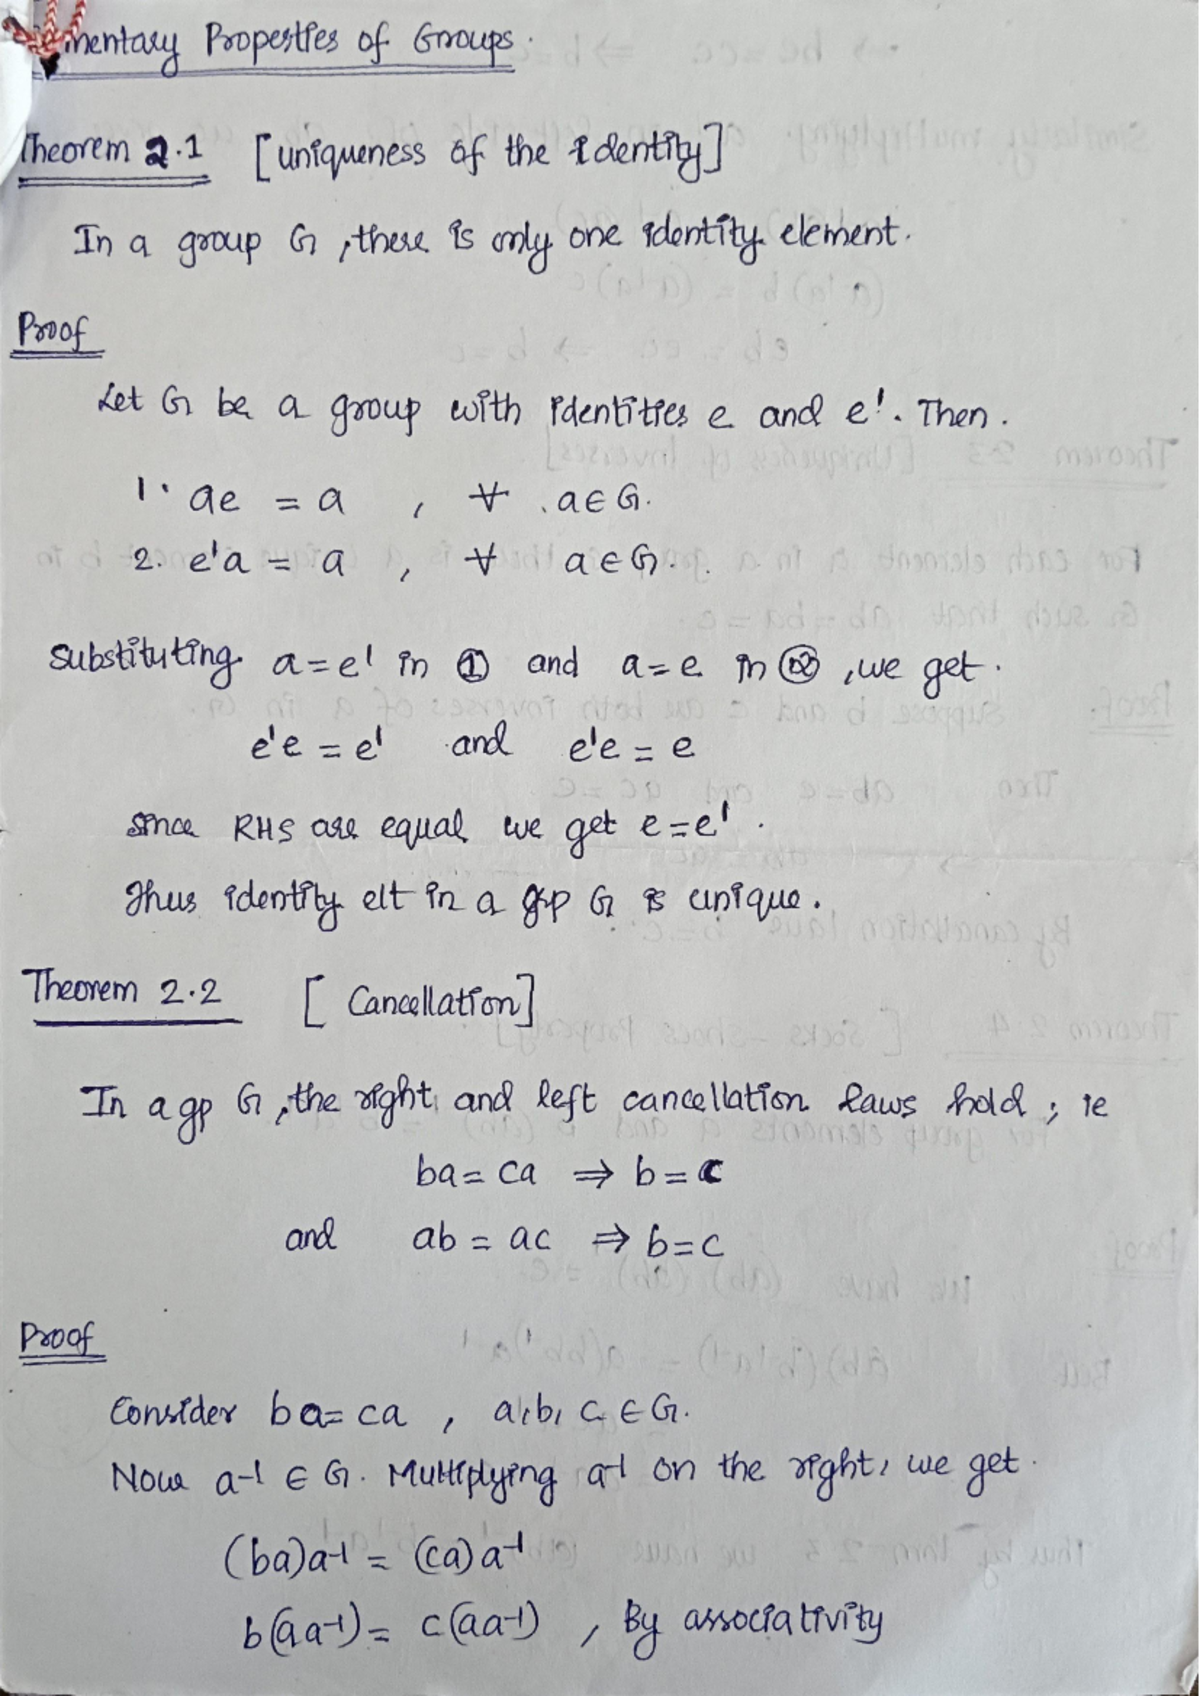 mentary Properties of Groups.
Theorem 2.1 [uniqueness of the Identity]
In a group G, there is only one identity element.
Proof
Let G be a group with identities e and e'. Then.
1. ae = a , ∀ a∈G.
2. e'a = a , ∀ a∈G.
Substituting a=e' in ① and a=e in ②, we get.
e'e = e' and e'e = e
Since RHS are equal we get e=e'.
Thus identity elt in a grp G is unique.
Theorem 2.2 [Cancellation]
In a gp G, the right and left cancellation laws hold; ie
ba = ca ⇒ b = c
and ab = ac ⇒ b=c
Proof
Consider ba= ca , a,b, c ∈ G.
Now a-1 ∈ G. Multiplying a-1 on the right, we get.
(ba)a-1 = (ca)a-1
b(aa-1) = c(aa-1) , By associativity